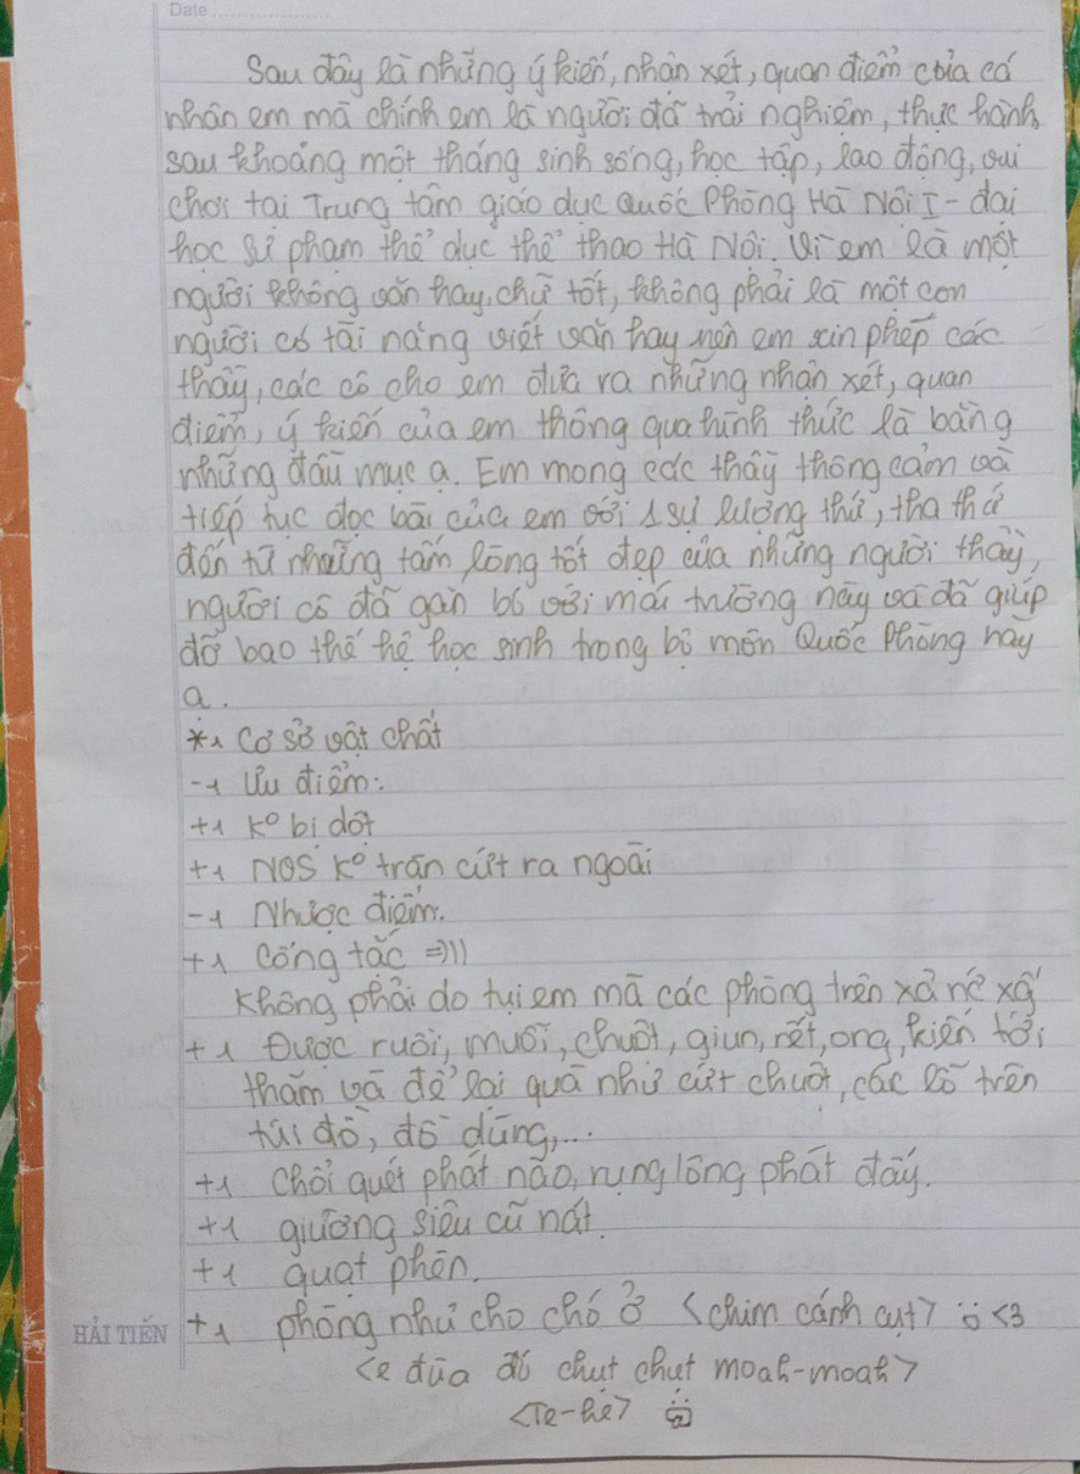 Date
Sau đây là những ý kiến, nhận xét, quan điểm của cá
nhân em mà chính em là người đã trải nghiệm, thực hành
sau khoảng một tháng sinh sống, học tập, lao động, vui
chơi tại Trung tâm giáo dục Quốc Phòng Hà Nội I - đại
học sư phạm thể dục thể thao Hà Nội. Vì em là một
người không văn hay, chữ tốt, không phải là một con
người có tài năng viết văn hay nên em xin phép các
thầy, các cô cho em đưa ra những nhận xét, quan
điểm, ý kiến của em thông qua hình thức là bằng
những đầu mục ạ. Em mong các thầy thông cảm và
tiếp tục đọc bài của em với 1 sự lượng thứ, tha thứ
đến từ những tấm lòng tốt đẹp của những người thầy,
người cô đã gắn bó với mái trường này và đã giúp
đỡ bao thế hệ học sinh trong bộ môn Quốc Phòng này
ạ.
*1 Cơ sở vật chất
-1 Ưu điểm:
+1 Kº bị dột
+1 NVS Kº tràn cứt ra ngoài
-1 Nhược điểm:
+1 Cống tắc =)))
Không phải do tụi em mà các phòng trên xả nc xg
+1 Được ruồi, muỗi, chuột, giun, rết, ong, kiến tới
thăm và để lại quà như cứt chuột, các lỗ trên
túi đồ, đồ dùng,...
+1 Chổi quét phát nào, rụng lông phát đấy.
+1 giường siêu cũ nát.
+1 quạt phèn.
+1 phòng như cho chó ở <chim cánh cụt> ü <3
<e đùa đó chụt chụt moah-moah>
<Te-he>
HẢI TIẾN